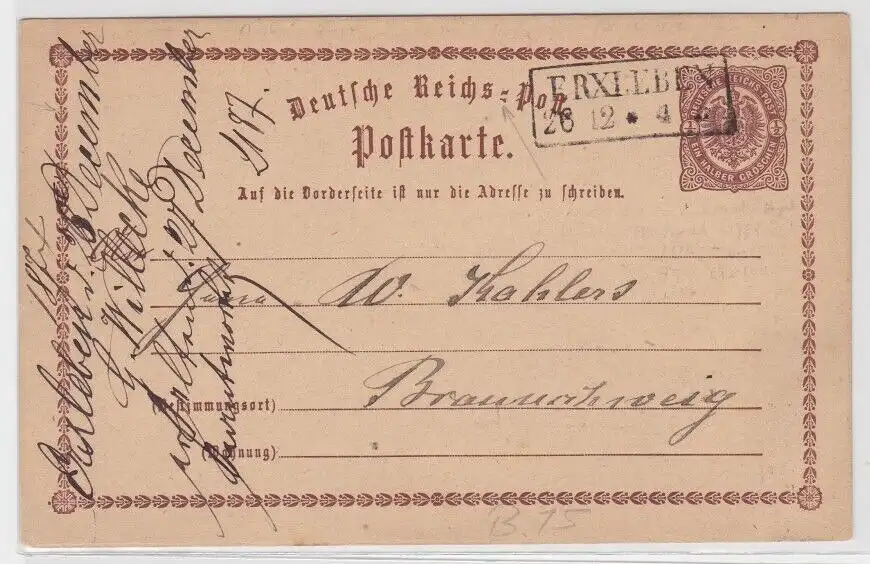 Deutsche Reichs-Post
Postkarte.
Auf die Vorderseite ist nur die Adresse zu schreiben.
ERXLEBEN
26 12 * 4
DEUTSCHE REICHS-POST
EIN HALBER GROSCHEN
½ ½
W. Kahlers
Braunschweig
(Bestimmungsort)
(Wohnung)
187
Erxleben December
G Willecke
27 December 187.
B. 15